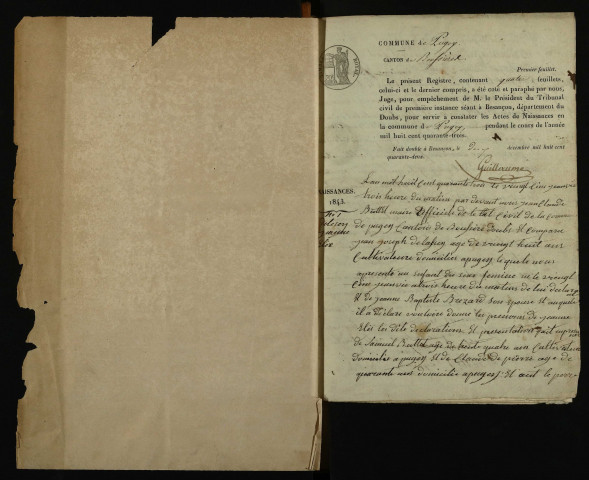 COMMUNE de Pugey.
CANTON de Boussières
Premier feuillet.
Le présent Registre, contenant quatre feuillets,
celui-ci et le dernier compris, a été coté et paraphé par nous,
Juge, pour empêchement de M. le Président du Tribunal
civil de première instance séant à Besançon, département du
Doubs, pour servir à constater les Actes de Naissances en
la commune de Pugey, pendant le cours de l'année
mil huit cent quarante-trois.
Fait double à Besançon, le décembre mil huit cent
quarante-deux.
Guillaume
NAISSANCES.
1843.
N° 1
Lan mil huit Cent quarante trois le vingt Cinq janvier
trois heure du matin par devant nous jean Claude
Buttet maire Officiele de l'etat Civil de la Comune
de pugey Cantons de Bousière doubs Et Compara
jean joseph age de vaingt huit ans
Cultivateure domicilier apugey le quele nous
apresente un enfant du sexe feminin ne le vaingt
Cinq janvier atrois heure du matin de lui declaran
Et de jeanne Baptiste Bezard Son Epouse Et auquele
il a declare vouloire donne les prenoms de jeanne
Eloi les dite declarations Et presentation fait en presan
de Samuel Buttet age de trent quatre ans Cultivateure
Domicilié a pugey Et de Claude pierre age de
quarante ans domicilié apugey Et ont le pere